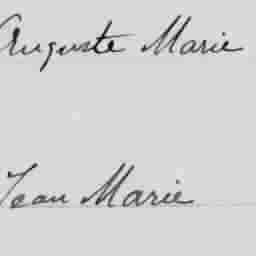 Auguste Marie
Jean Marie